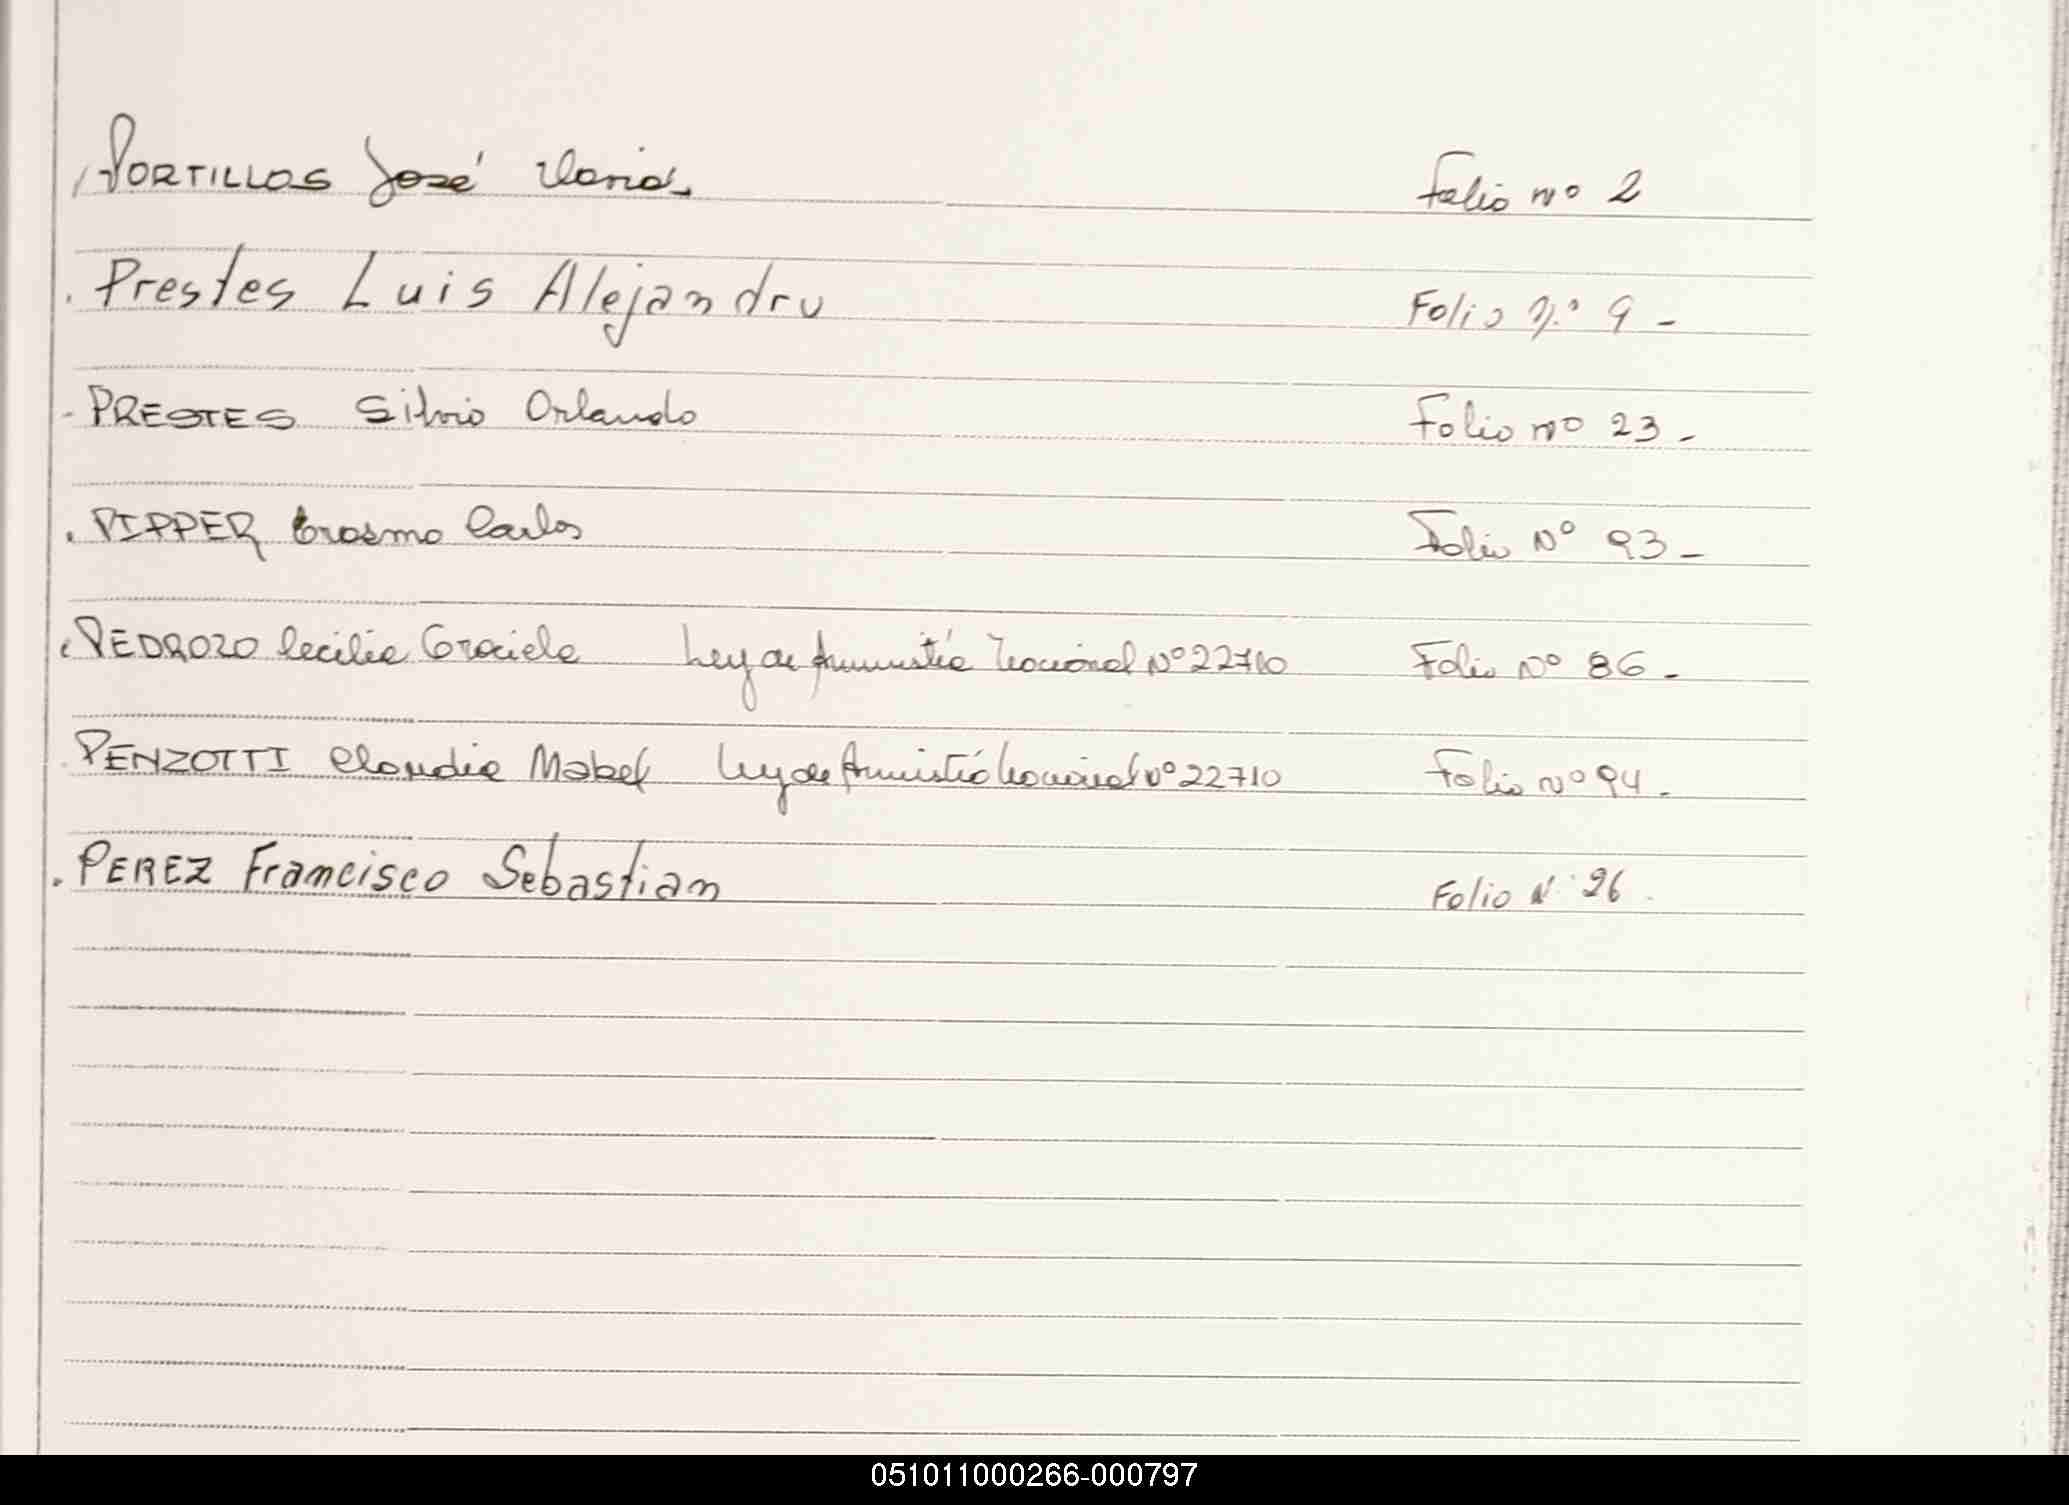 PORTILLOS José María. Folio nº 2
. Prestes Luis Alejandro Folio n.º 9 -
- PRESTES Silvio Orlando Folio nº 23 -
. PIPPER Erasmo Carlos Folio Nº 93 -
PEDROZO Cecilia Graciela Ley de Amnistía Nacional Nº 22710 Folio Nº 86 -
PENZOTTI Claudia Mabel Ley de Amnistía Nacional Nº 22710 Folio Nº 94 .
. PEREZ Francisco Sebastian Folio Nº 26 .
051011000266-000797